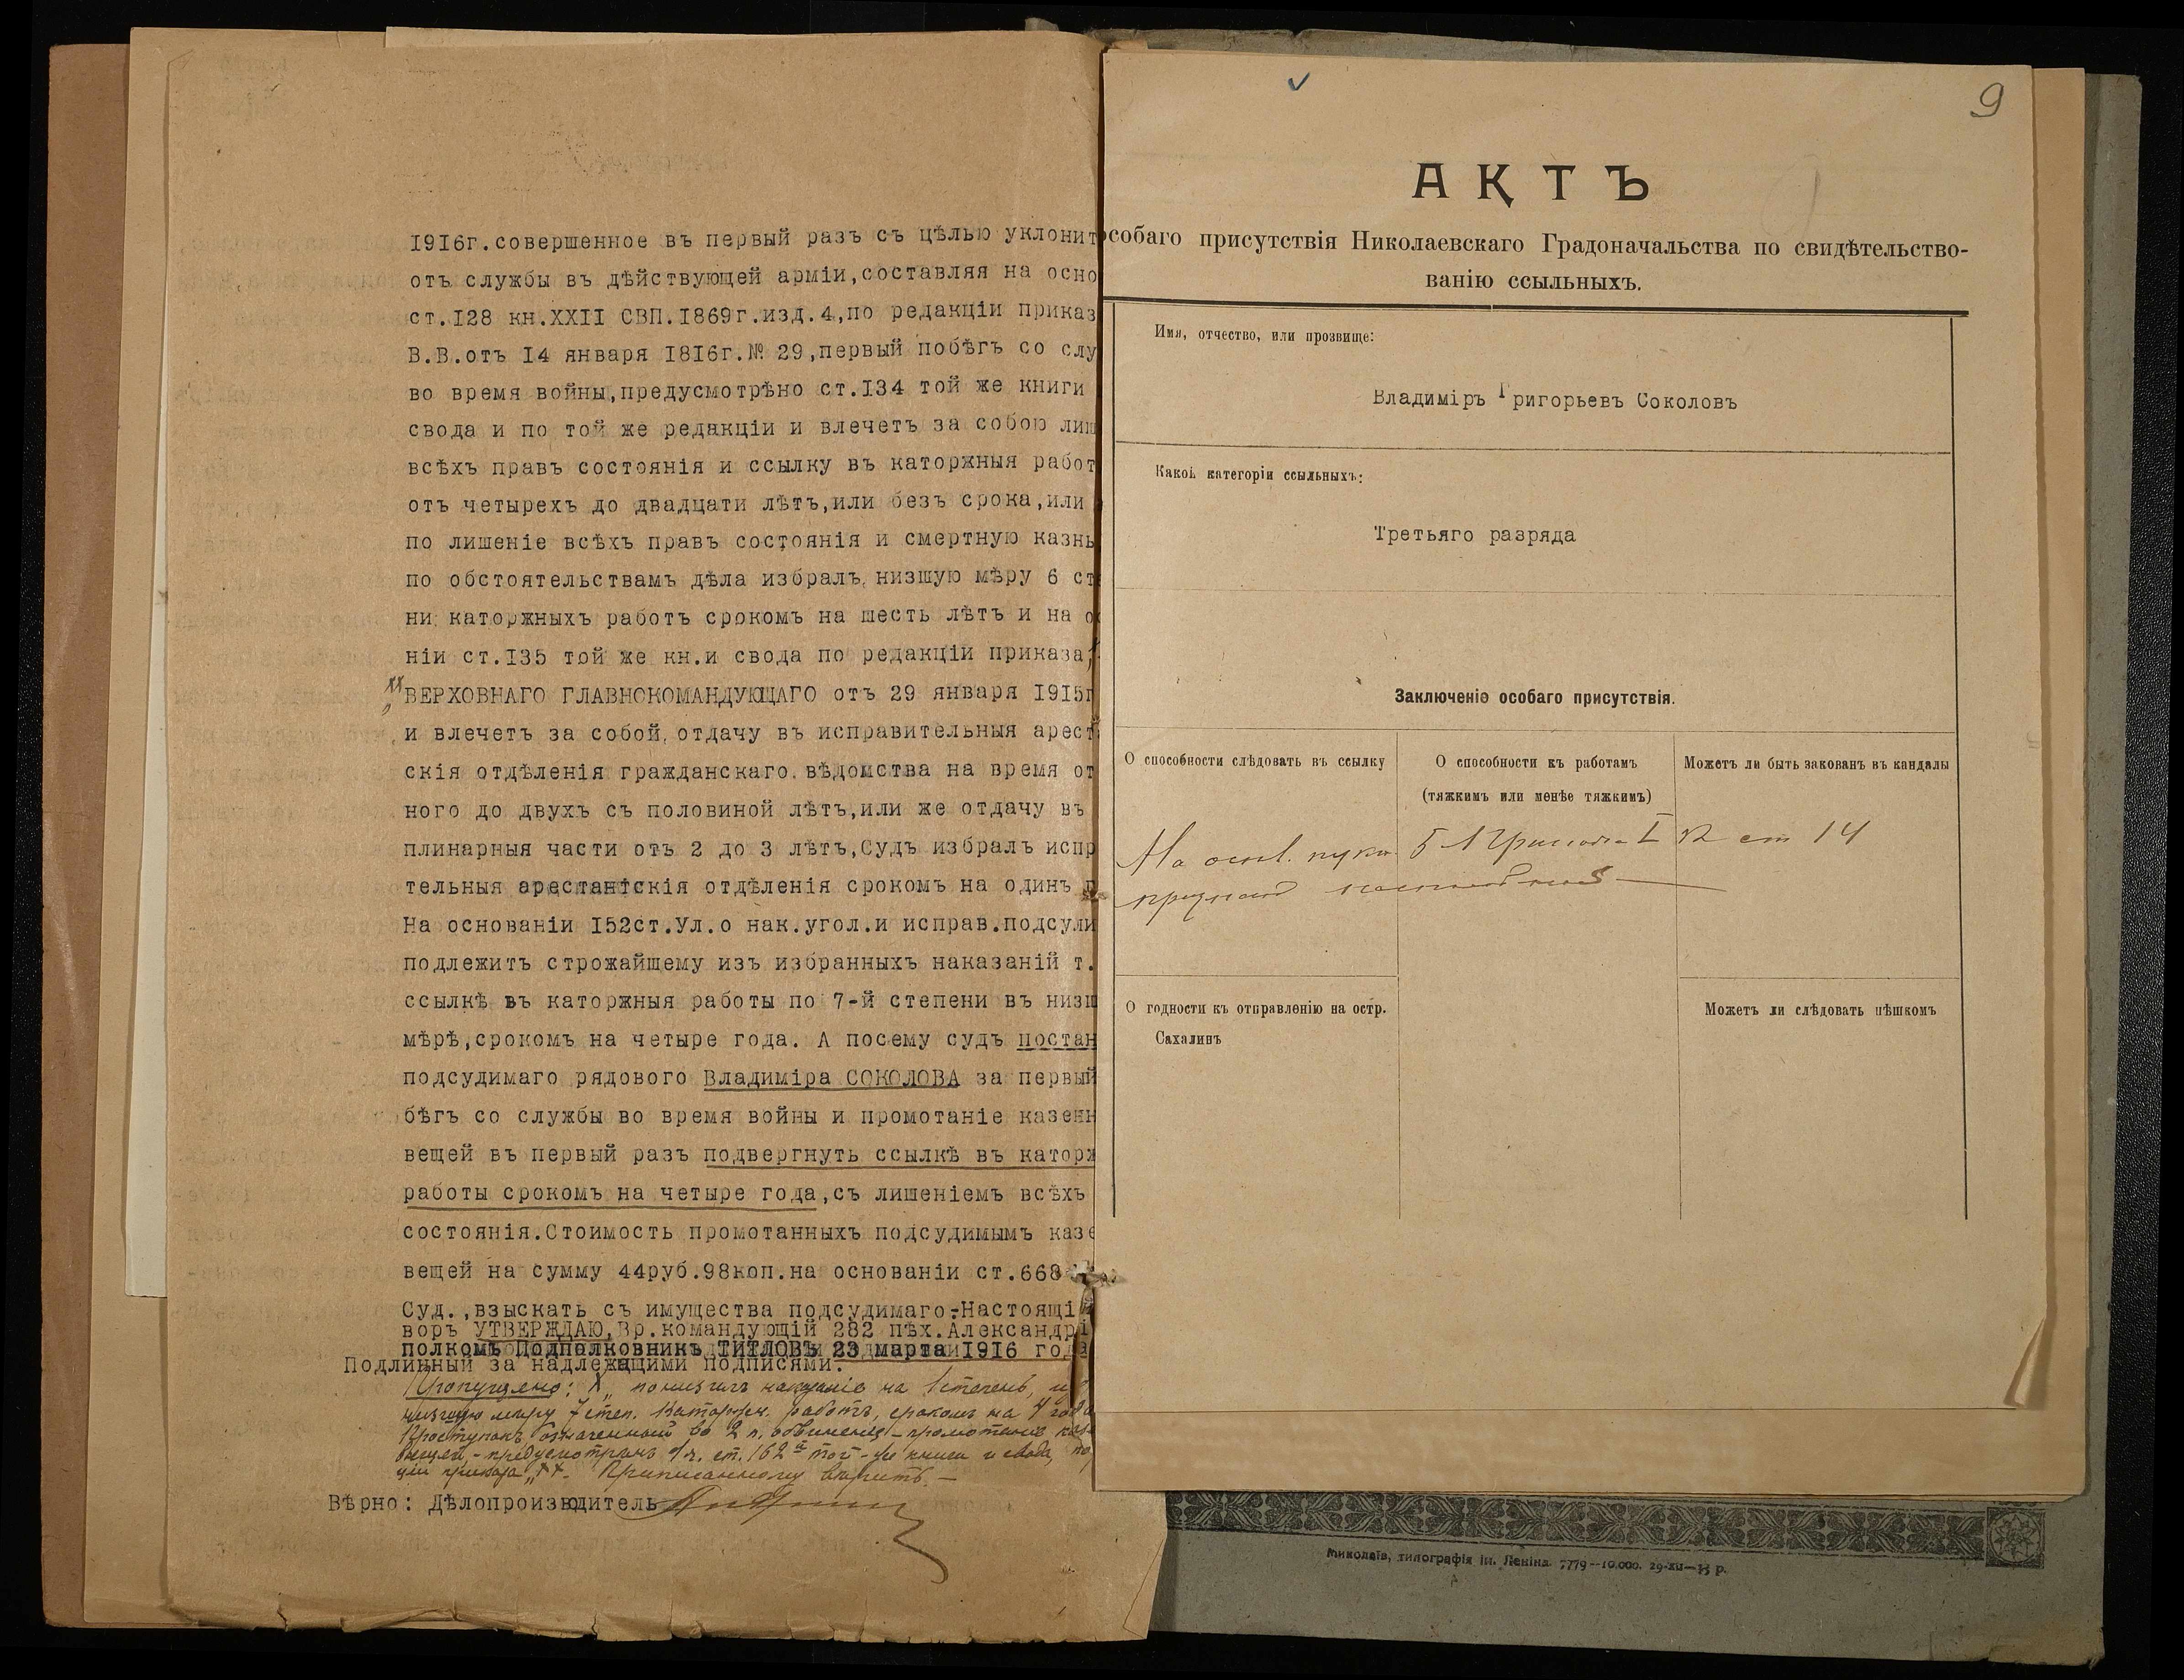 1916г.совершенное въ первый разъ съ цѣлью уклонит
отъ службы въ дѣйствующей арміи,составляя на осно
ст.128 кн.XXII СВП.1869г.изд.4,по редакціи приказ
В.В.отъ 14 января 1816г.№ 29,первый побѣгъ со слу
во время войны,предусмотрѣно ст.134 той же книги
свода и по той же редакціи и влечетъ за собою лиш
всѣхъ правъ состоянія и ссылку въ каторжныя работ
отъ четырехъ до двадцати лѣтъ,или безъ срока,или
по лишеніе всѣхъ правъ состоянія и смертную казнь
по обстоятельствамъ дѣла избралъ низшую мѣру 6 ст
ни каторжныхъ работъ срокомъ на шесть лѣтъ и на о
ніи ст.135 той же кн.и свода по редакціи приказа,
ВЕРХОВНАГО ГЛАВНОКОМАНДУЮЩАГО отъ 29 января 1915г
и влечетъ за собой отдачу въ исправительныя арест
скія отдѣленія гражданскаго вѣдомства на время от
ного до двухъ съ половиной лѣтъ,или же отдачу въ
плинарныя части отъ 2 до 3 лѣтъ,Судъ избралъ испр
тельныя арестантскія отдѣленія срокомъ на одинъ г
На основаніи 152ст.Ул.о нак.угол.и исправ.подсуди
подлежитъ строжайшему изъ избранныхъ наказаній т.
ссылкѣ въ каторжныя работы по 7-й степени въ низш
мѣрѣ,срокомъ на четыре года. А посему судъ постан
подсудимаго рядового Владиміра СОКОЛОВА за первый
бѣгъ со службы во время войны и промотаніе казенн
вещей въ первый разъ подвергнуть ссылкѣ въ каторж
работы срокомъ на четыре года,съ лишеніемъ всѣхъ
состоянія.Стоимость промотанныхъ подсудимымъ казе
вещей на сумму 44руб.98коп.на основаніи ст.668
Суд.,взыскать съ имущества подсудимаго.-Настоящі
воръ УТВЕРЖДАЮ,Вр.командующій 282 пѣх.Александрі
полкомъ Подполковникъ ТИТЛОВЪ 23 марта 1916 года
Подлинный за надлежащими подписями.
Пропущено: X" понизилъ наказаніе на 1 степень, и
низшую мѣру 7 степ. каторжн. работъ, срокомъ на 4 года
Проступокъ означенный во 2 п. обвиненія - промотаніе каз
вещей, - предусмотрѣнъ 1 ч. ст. 162 той-же книги и свода, по
ціи приказа "XX". Приписанному вѣрить. -
Вѣрно: Дѣлопроизводитель
9
АКТЪ
Особаго присутствія Николаевскаго Градоначальства по свидѣтельство-
ванію ссыльныхъ.
Имя, отчество, или прозвище:
Владиміръ Григорьевъ Соколовъ
Какой категоріи ссыльныхъ:
Третьяго разряда
Заключеніе особаго присутствія.
О способности слѣдовать въ ссылку
О способности къ работамъ
(тяжкимъ или менѣе тяжкимъ)
Можетъ ли быть закованъ въ кандалы
На основ. 5 I ст 14
О годности къ отправленію на остр.
Сахалинъ
Можетъ ли слѣдовать пѣшкомъ
Миколаїв, типографія ім. Леніна. 7779—10.000. 29-XII—